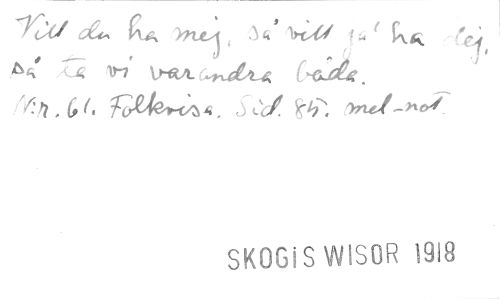 Vill du ha mej, så vill ja' ha dej,
så ta vi varandra båda.
N:r. 61. Folkvisa. Sid. 85. mel-not.
SKOGIS WISOR 1918